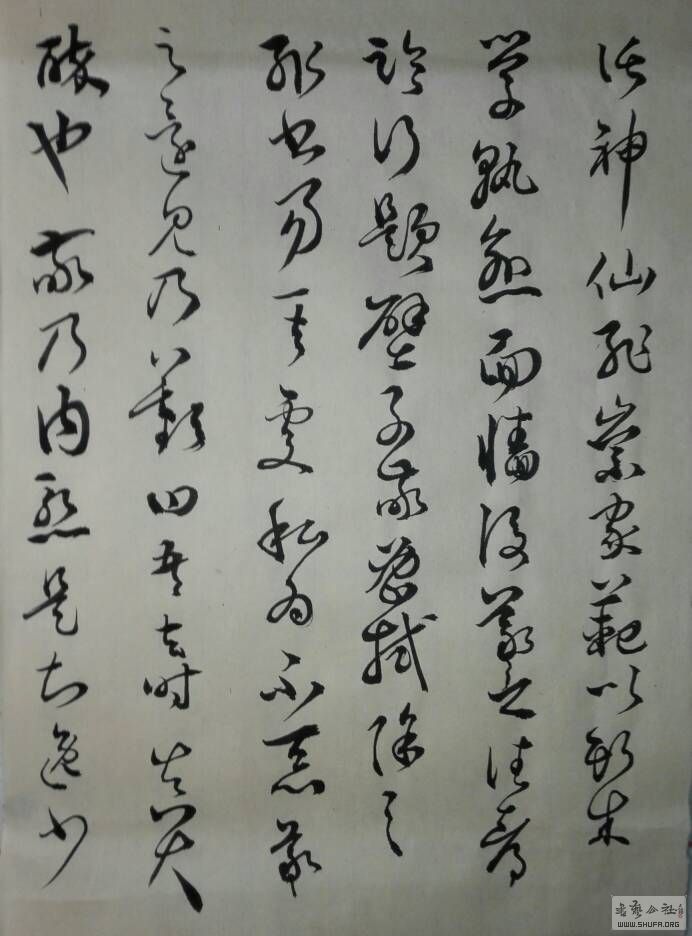 託神仙恥崇家範以斯成
學孰愈面牆後羲之往都
臨行題壁子敬密拭除之
輒書易其處私為不惡羲
之還見乃歎曰吾去時真大
醉也敬乃內慙是知逸少
书艺公社
WWW.SHUFA.ORG